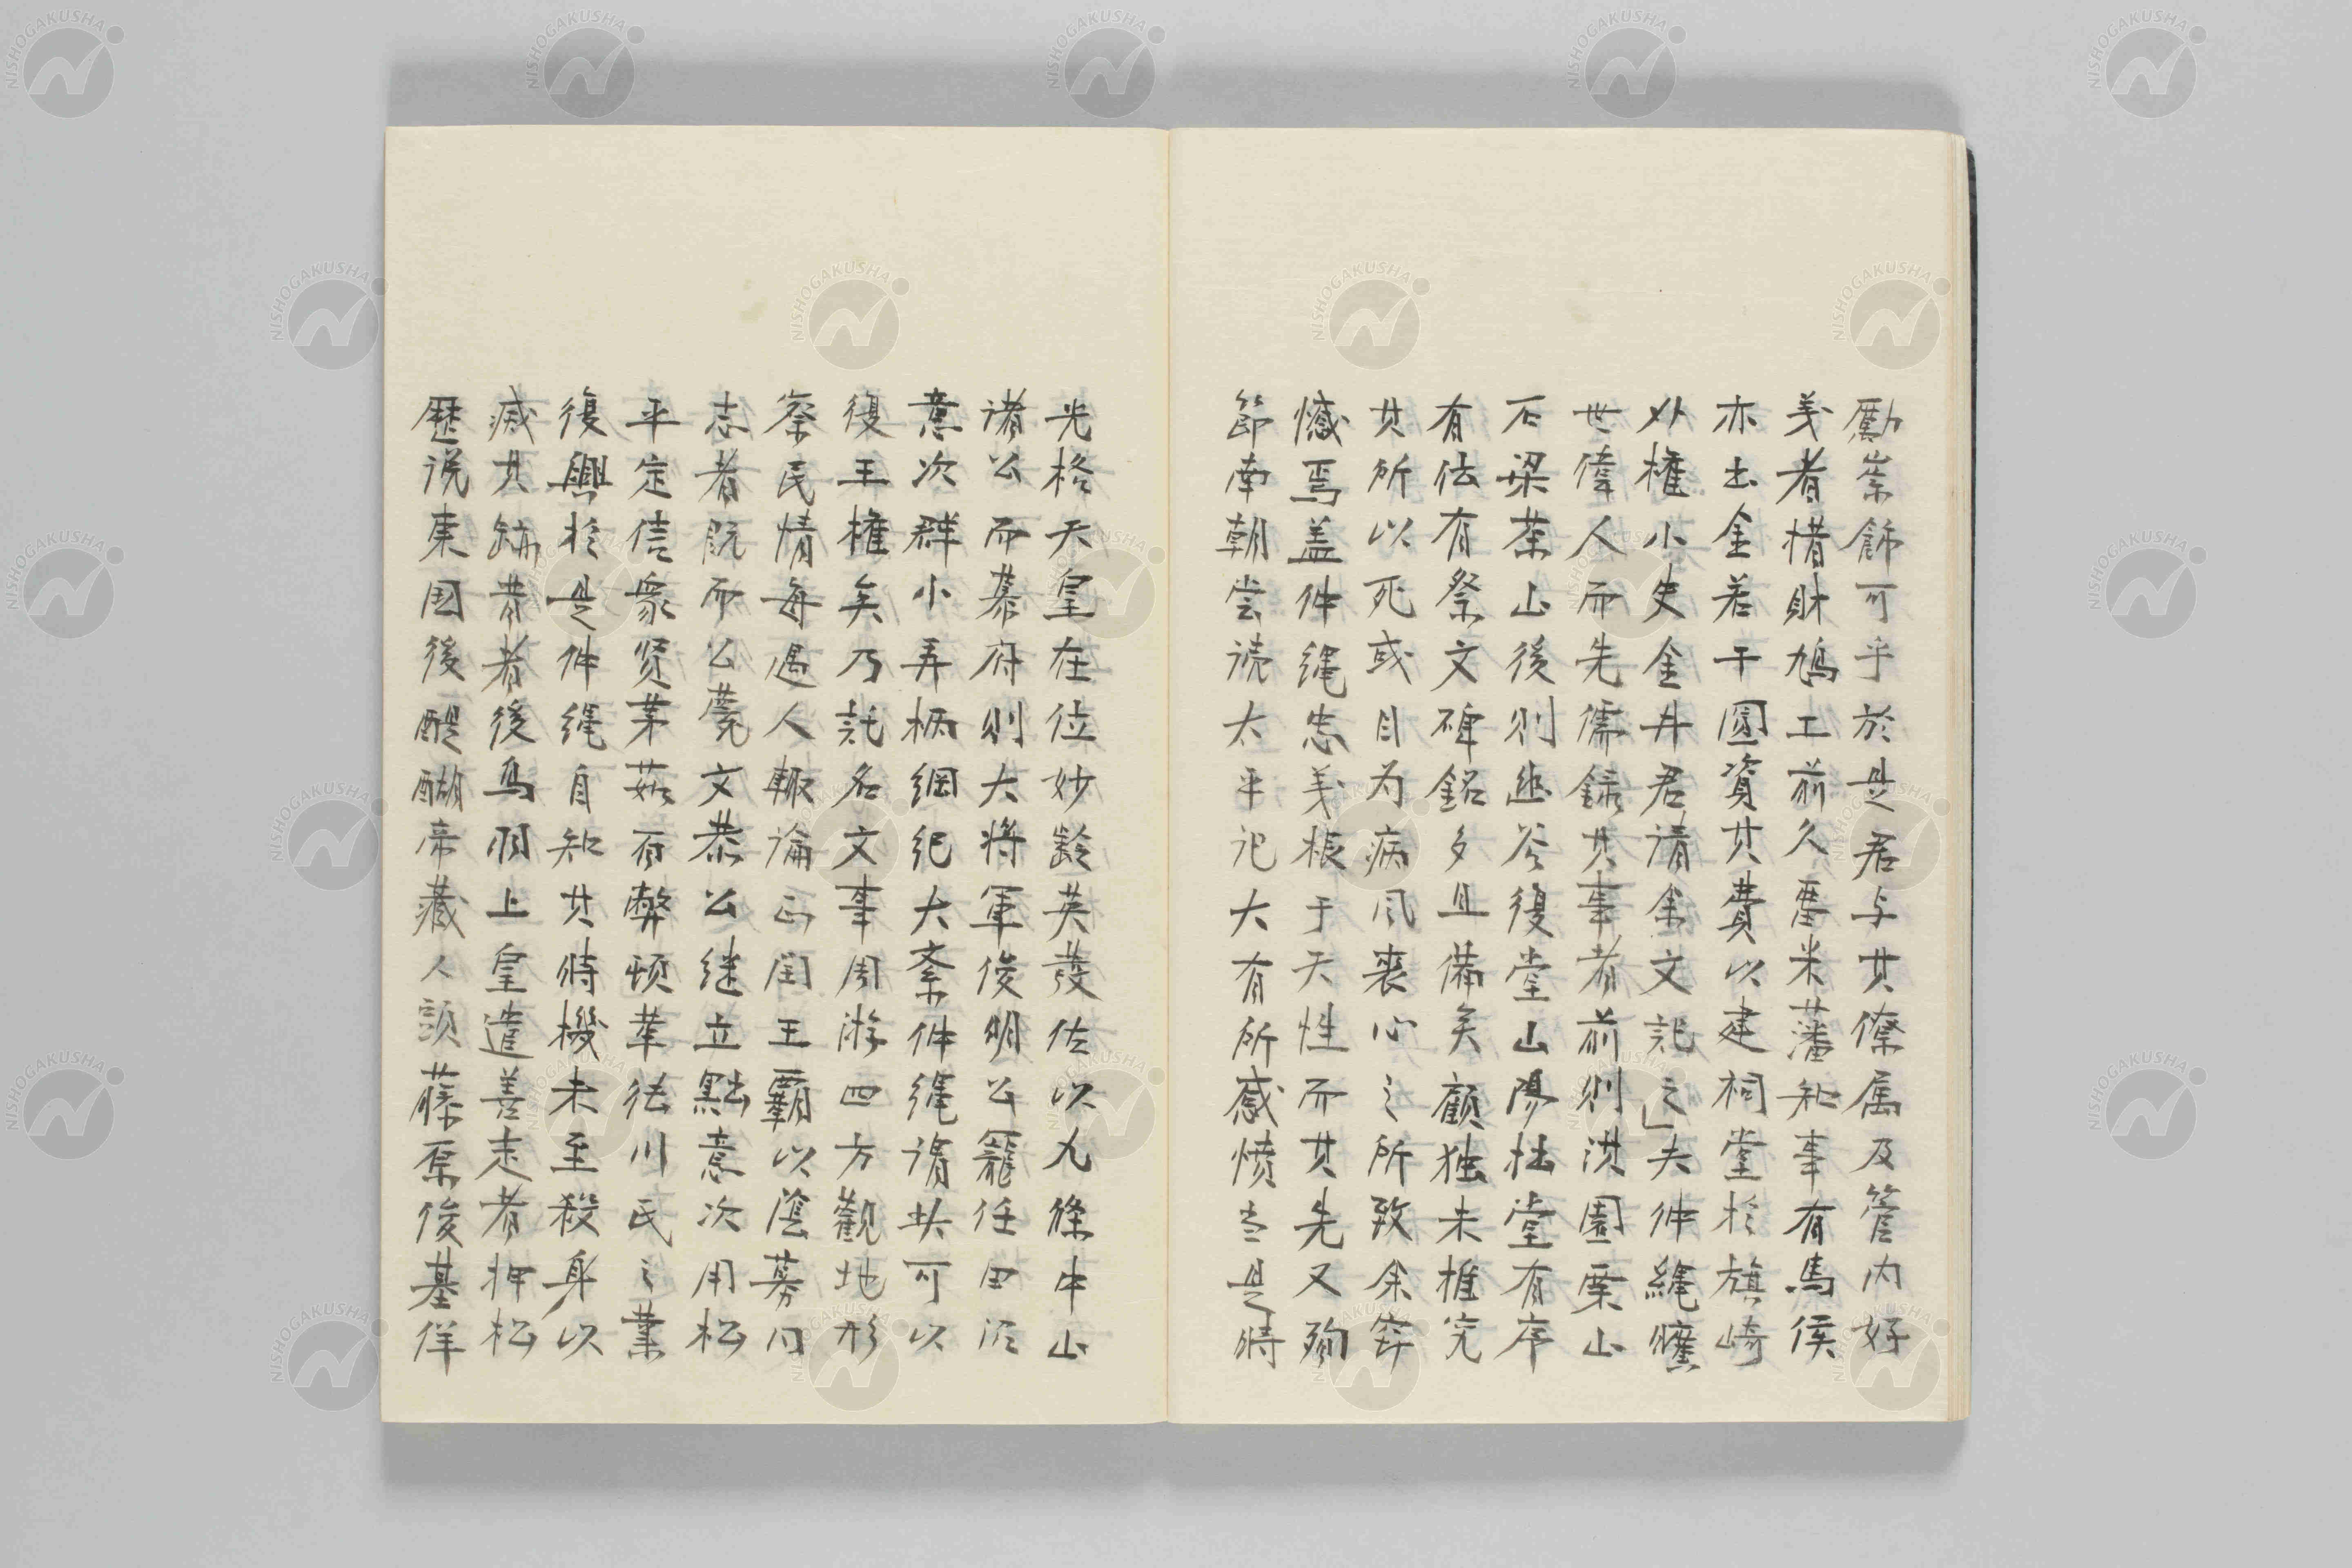 勵崇飾可乎於是君与其僚属及管内好
義者楷財鳩工前久畱米藩知事有馬侯
亦出金若干圓資其費以建祠堂於旗崎
外権小史金井君請余文記之夫仲縄曠
世偉人而先儒録其事者前則淇園栗山
石梁茶山後則邀谷復堂山陽拙堂有序
有伝有祭文碑銘多且備矣顧独未推究
其所以死或目为病風喪心之所致余窃
憾焉盖仲縄忠義根于天性而其先又殉
節南朝尝読太平记大有所感憤当是時
光格天皇在位妙齢英發佐以九條中山
諸公而幕府則大将軍俊明公寵任田沼
意次群小弄柄綱紀大紊仲縄謂此可以
復王権矣乃託名文事周游四方觀地形
察民情每遇人輙論正閏王覇以陰募同
志者既而公薨文恭公継立黜意次用松
平定信衆贤茅茹百弊頓革徳川氏之業
復興於是仲縄自知其時機未至殺身以
滅其跡昔者後鳥羽上皇遣善走者押松
歴说東国後醍醐帝蔵人頭藤原俊基佯
NISHOGAKUSHA